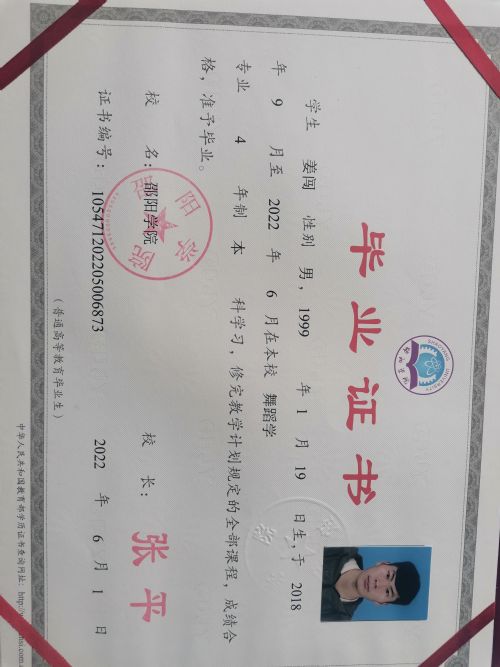 毕业证书
学生 姜闯 性别 男，1999 年 1 月 19 日生，于 2018
年 9 月至 2022 年 6 月在本校 舞蹈学
专业 4 年制 本 科学习，修完教学计划规定的全部课程，成绩合
格，准予毕业。
校 名：邵阳学院 校 长：张平
证书编号：105471202205006873 2022 年 6 月 1 日
（普通高等教育毕业生）
中华人民共和国教育部学历证书查询网址：http://w